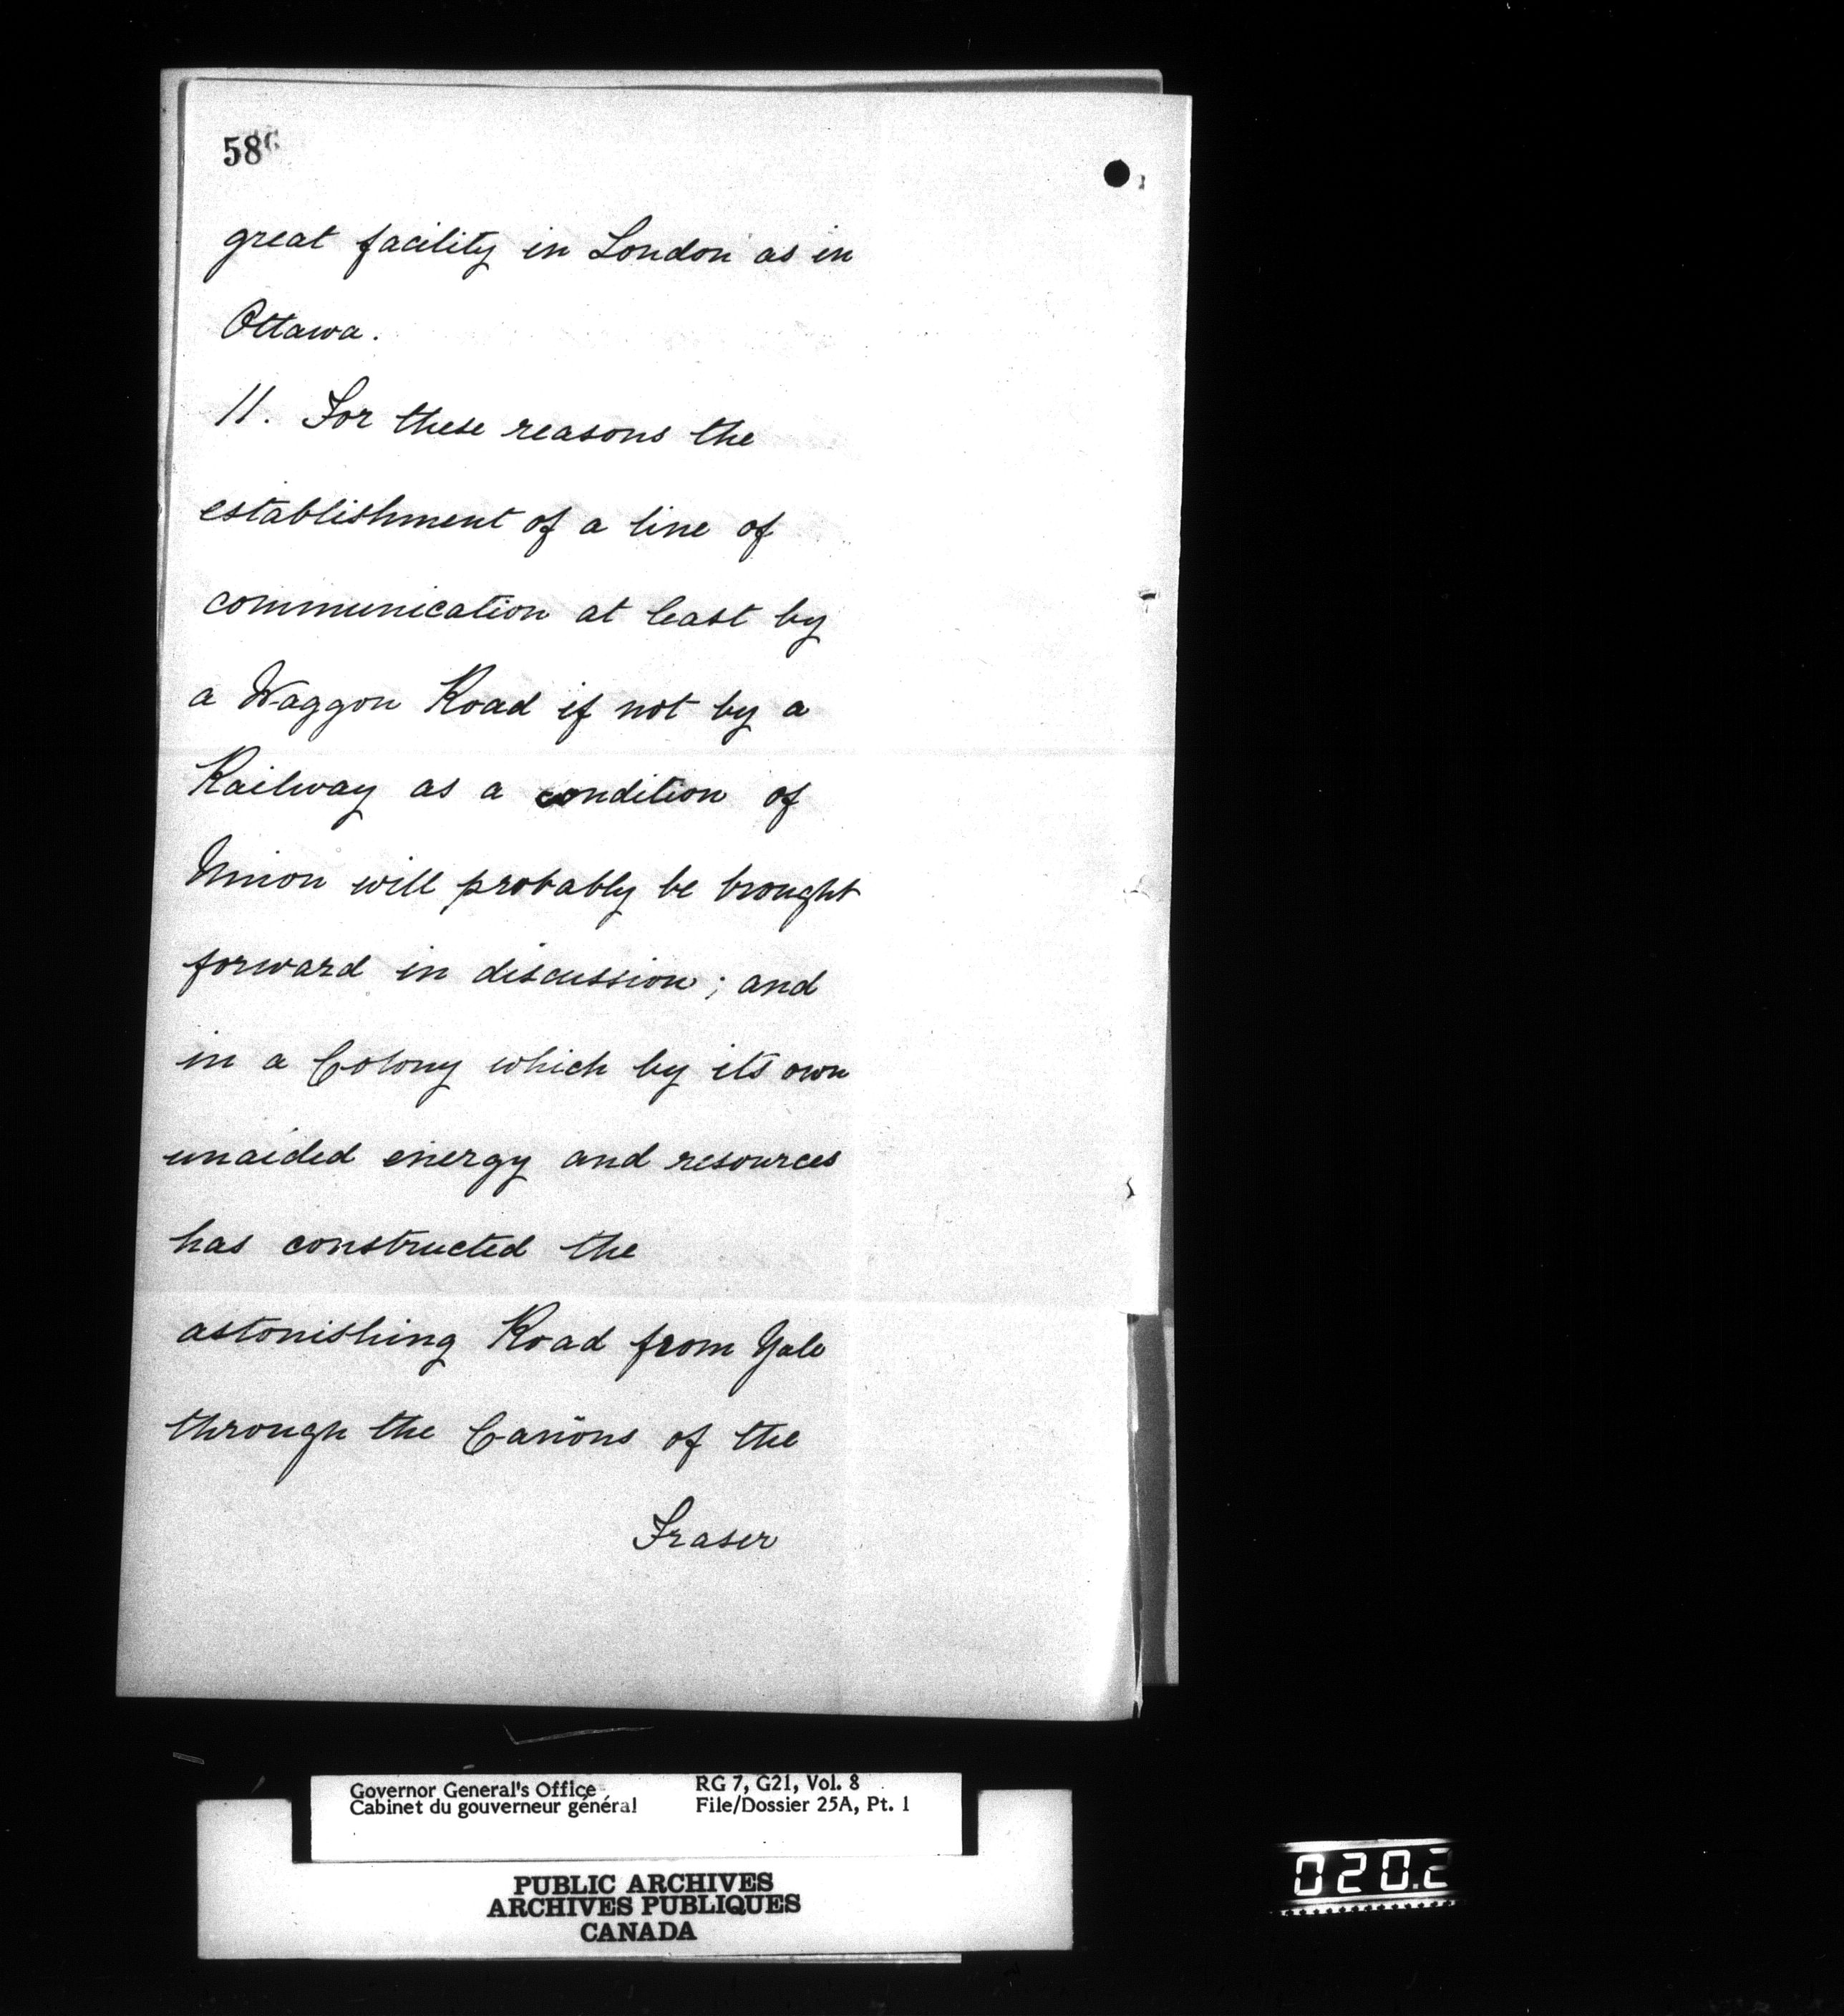 586
great facility in London as in
Ottawa.
11. For these reasons the
establishment of a line of
communication at least by
a Waggon Road if not by a
Railway as a condition of
Union will probably be brought
forward in discussion; and
in a Colony which by its own
unaided energy and resources
has constructed the
astonishing Road from Yale
through the Cañons of the
Fraser
Governor General's Office
Cabinet du gouverneur général
RG 7, G21, Vol. 8
File/Dossier 25A, Pt. 1
PUBLIC ARCHIVES
ARCHIVES PUBLIQUES
CANADA
020.2